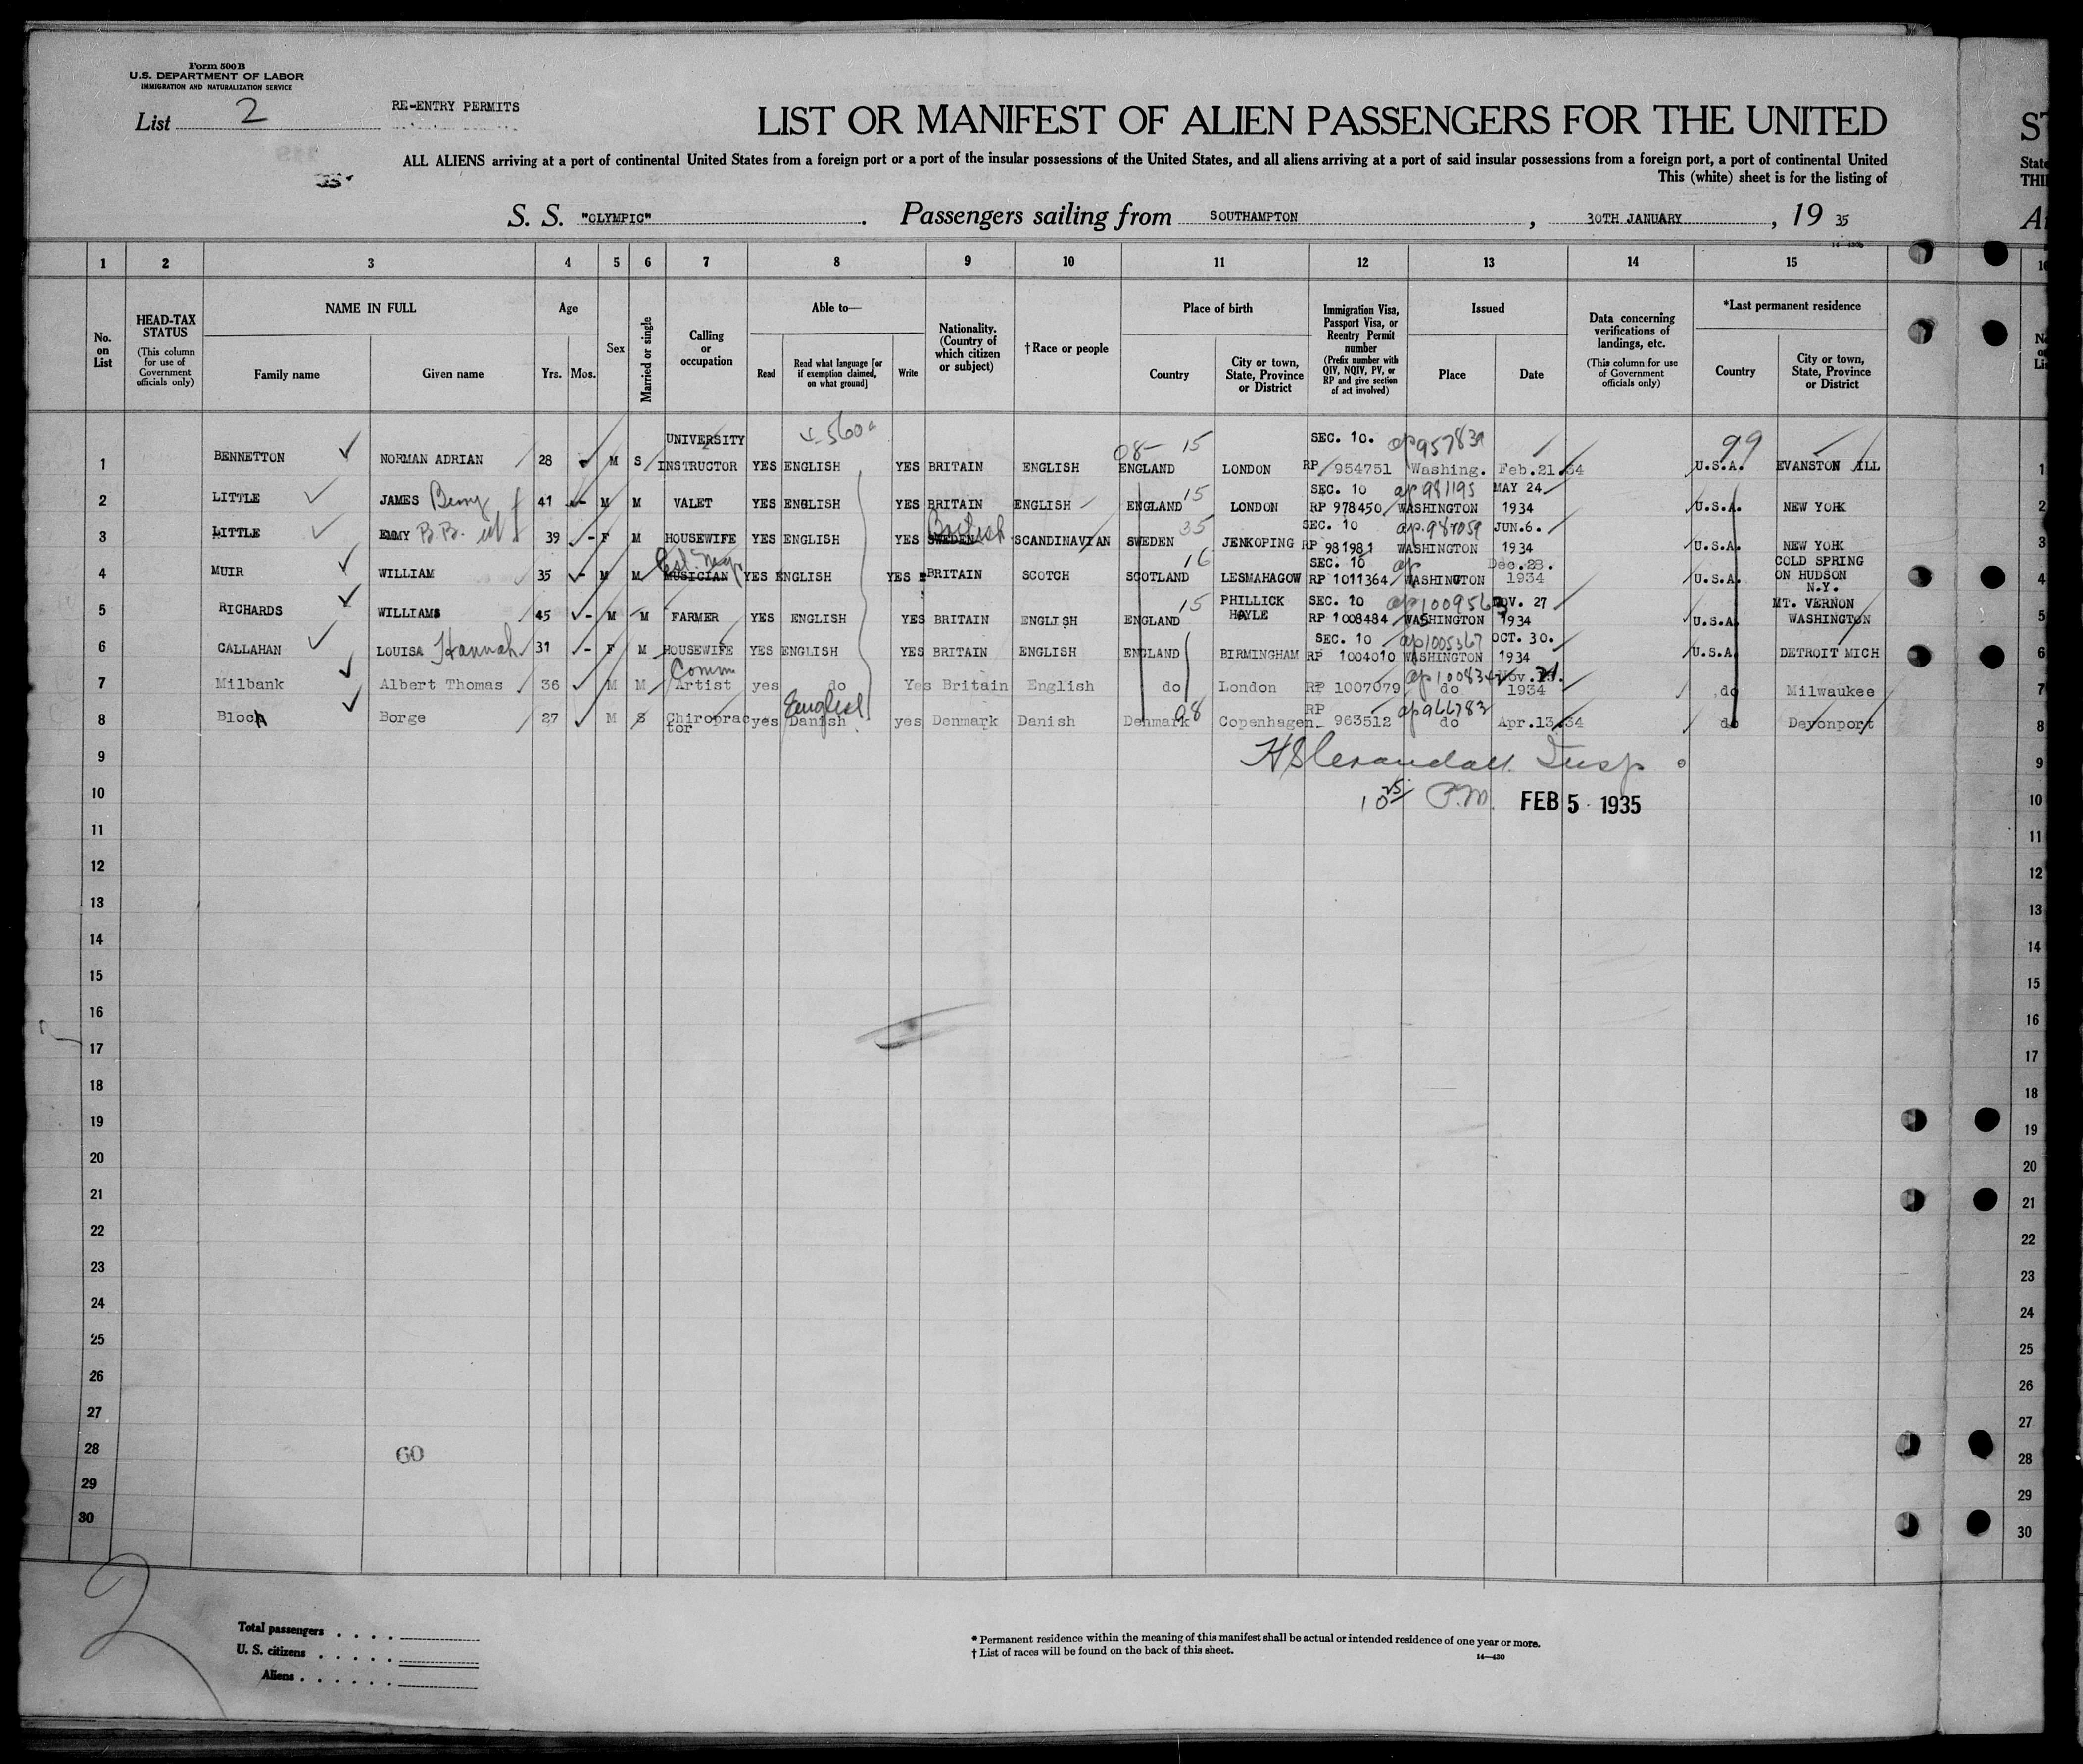 Form 500 B
U.S. DEPARTMENT OF LABOR
IMMIGRATION AND NATURALIZATION SERVICE
List 2
RE-ENTRY PERMITS
LIST OR MANIFEST OF ALIEN PASSENGERS FOR THE UNITED
ST
ALL ALIENS arriving at a port of continental United States from a foreign port or a port of the insular possessions of the United States, and all aliens arriving at a port of said insular possessions from a foreign port, a port of continental United
This (white) sheet is for the listing of
S. S. "OLYMPIC" . Passengers sailing from SOUTHAMPTON , 30TH JANUARY , 19 35
1 2 3 4 5 6 7 8 9 10 11 12 13 14 15
No. on List
HEAD-TAX STATUS
(This column for use of Government officials only)
NAME IN FULL
Family name
Given name
Age
Yrs. Mos.
Sex
Married or single
Calling or occupation
Able to—
Read
Read what language [or if exemption claimed, on what ground]
Write
Nationality. (Country of which citizen or subject)
†Race or people
Place of birth
Country
City or town, State, Province or District
Immigration Visa, Passport Visa, or Reentry Permit number
(Prefix number with QIV, NQIV, PV, or RP and give section of act involved)
Issued
Place
Date
Data concerning verifications of landings, etc.
(This column for use of Government officials only)
*Last permanent residence
Country
City or town, State, Province or District
1 BENNETTON NORMAN ADRIAN 28 M S UNIVERSITY INSTRUCTOR YES ENGLISH YES BRITAIN ENGLISH 15 ENGLAND LONDON SEC. 10. RP 954751 Washing. Feb.21.34 99 U.S.A. EVANSTON ILL 1
2 LITTLE JAMES 41 - M M VALET YES ENGLISH YES BRITAIN ENGLISH 15 ENGLAND LONDON SEC. 10 RP 978450 ap 981195 WASHINGTON MAY 24 1934 U.S.A. NEW YORK 2
3 LITTLE EMMY B.B. 39 - F M HOUSEWIFE YES ENGLISH YES SWEDEN British SCANDINAVIAN 35 SWEDEN JENKOPING SEC. 10 RP 981981 WASHINGTON JUN.6. 1934 U.S.A. NEW YORK 3
4 MUIR WILLIAM 35 - M M MUSICIAN YES ENGLISH YES BRITAIN SCOTCH 16 SCOTLAND LESMAHAGOW SEC. 10 RP 1011364 ap WASHINGTON Dec.28. 1934 U.S.A. COLD SPRING ON HUDSON N.Y. 4
5 RICHARDS WILLIAMS 45 - M M FARMER YES ENGLISH YES BRITAIN ENGLISH 15 ENGLAND PHILLICK HAYLE SEC. 10 RP 1008484 ap 1009563 WASHINGTON NOV. 27 1934 U.S.A. MT. VERNON WASHINGTON 5
6 CALLAHAN LOUISA Hannah 31 - F M HOUSEWIFE YES ENGLISH YES BRITAIN ENGLISH ENGLAND BIRMINGHAM SEC. 10 RP 1004010 ap 1005367 WASHINGTON OCT. 30. 1934 U.S.A. DETROIT MICH 6
7 Milbank Albert Thomas 36 M M Comm Artist yes do Yes Britain English do London RP 1007079 do Nov. 1934 do Milwaukee 7
8 Bloch Borge 27 M S Chiropractor yes Danish English yes Denmark Danish Denmark 08 Copenhagen RP 963512 ap 966783 do Apr.13.34 do Devonport 8
9 Insp 9
10 10 25 P.M. FEB 5 1935 10
11 11
12 12
13 13
14 14
15 15
16 16
17 17
18 18
19 19
20 20
21 21
22 22
23 23
24 24
25 25
26 26
27 27
28 60 28
29 29
30 30
2
Total passengers
U. S. citizens
Aliens
* Permanent residence within the meaning of this manifest shall be actual or intended residence of one year or more.
† List of races will be found on the back of this sheet.
14—420